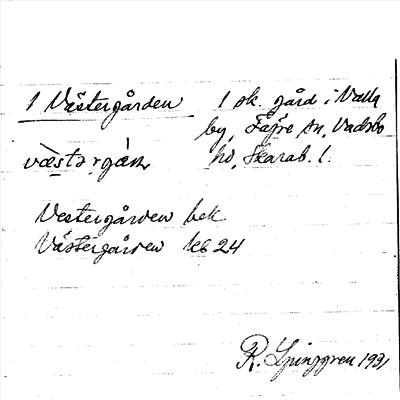 1 Västergården 1 sk. gård i Valla
by, Fägre sn, Vadsbo
hd, Skarab. l.
Vestergården bek
Västergården kb 24
R. Ljunggren 1931